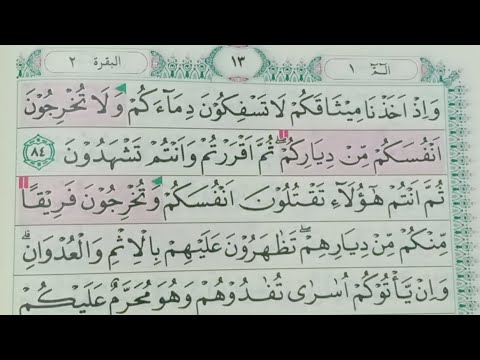 البقرة ٢
١٣
الٓمّٓ ١
وَاِذْ اَخَذْنَا مِيْثَاقَكُمْ لَا تَسْفِكُوْنَ دِمَآءَكُمْ وَلَا تُخْرِجُوْنَ
اَنْفُسَكُمْ مِّنْ دِيَارِكُمْ ۖ ثُمَّ اَقْرَرْتُمْ وَاَنْتُمْ تَشْهَدُوْنَ ٨٤
ثُمَّ اَنْتُمْ هٰٓؤُلَآءِ تَقْتُلُوْنَ اَنْفُسَكُمْ وَتُخْرِجُوْنَ فَرِيْقًا
مِّنْكُمْ مِّنْ دِيَارِهِمْ ۖ تَظٰهَرُوْنَ عَلَيْهِمْ بِالْاِثْمِ وَالْعُدْوَانِ ۗ
وَاِنْ يَّأْتُوْكُمْ اُسٰرٰى تُفٰدُوْهُمْ وَهُوَ مُحَرَّمٌ عَلَيْكُمْ